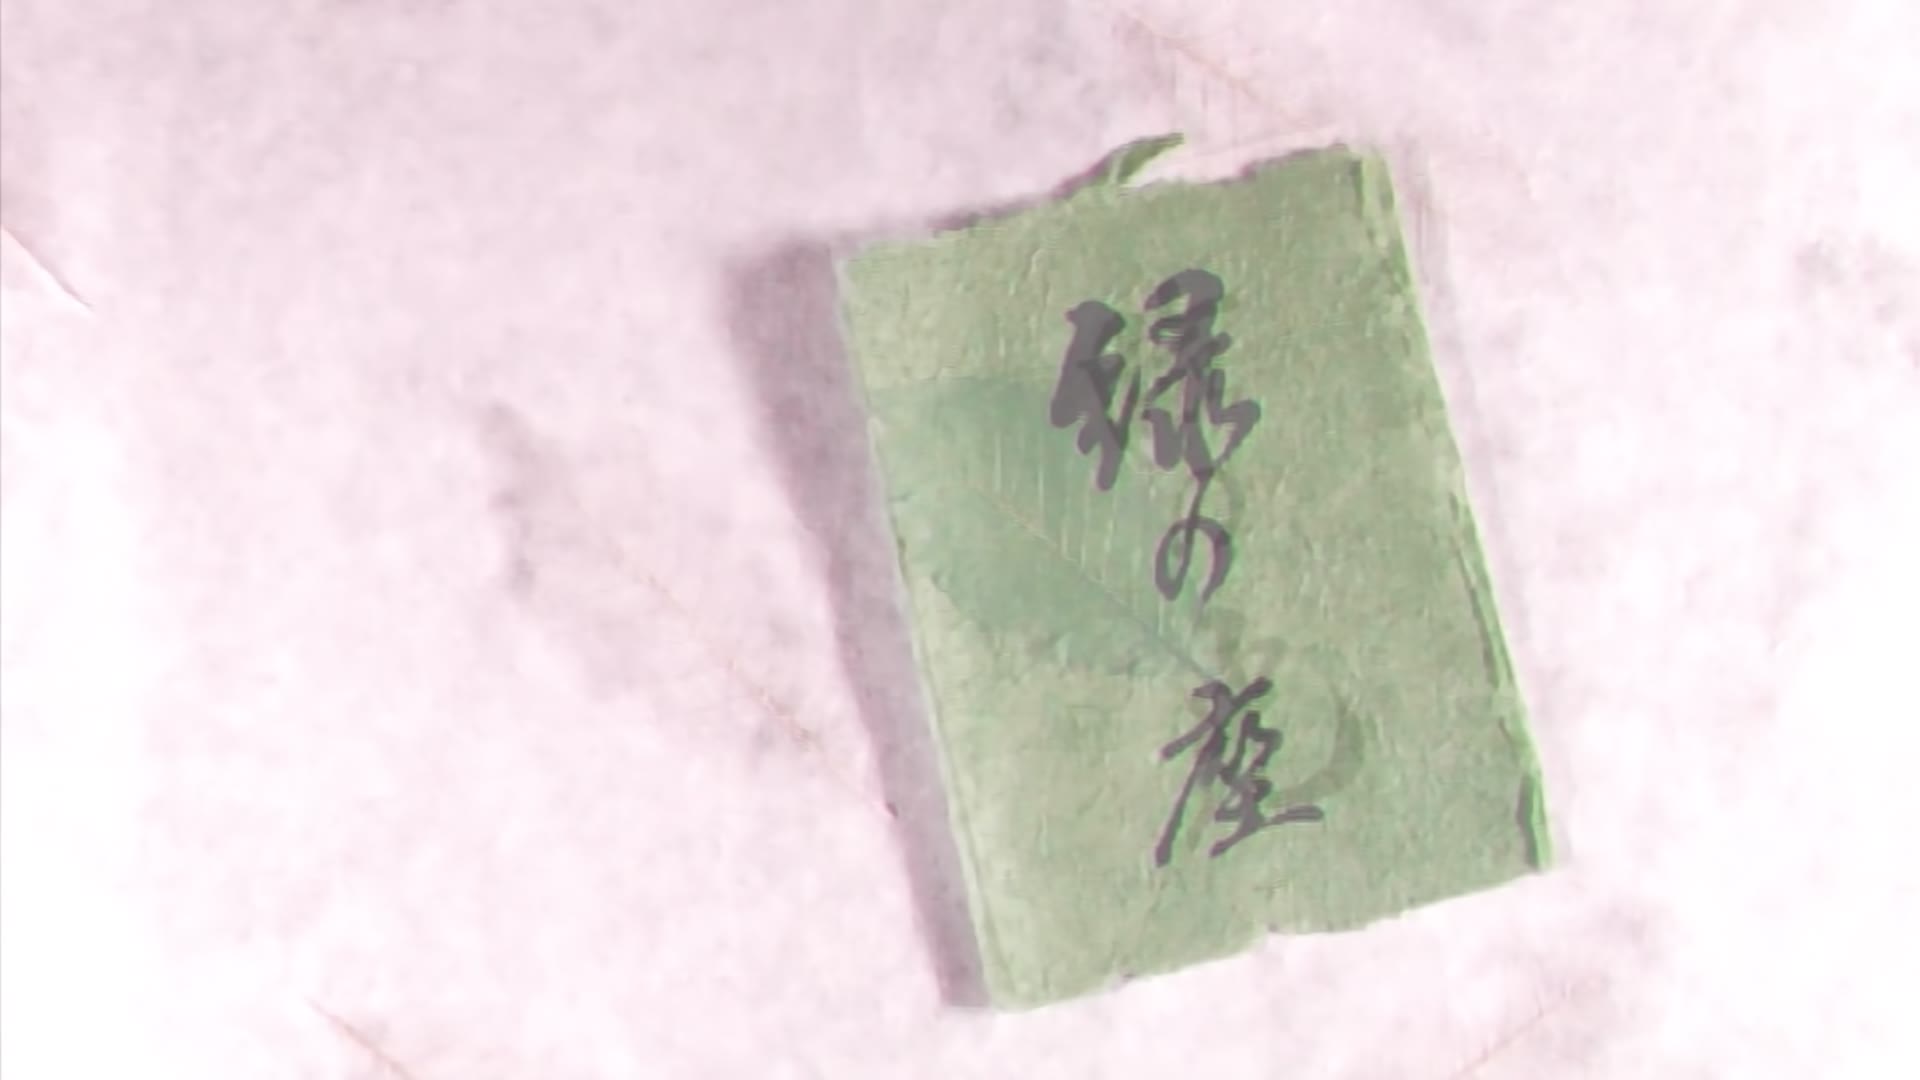 緑の座